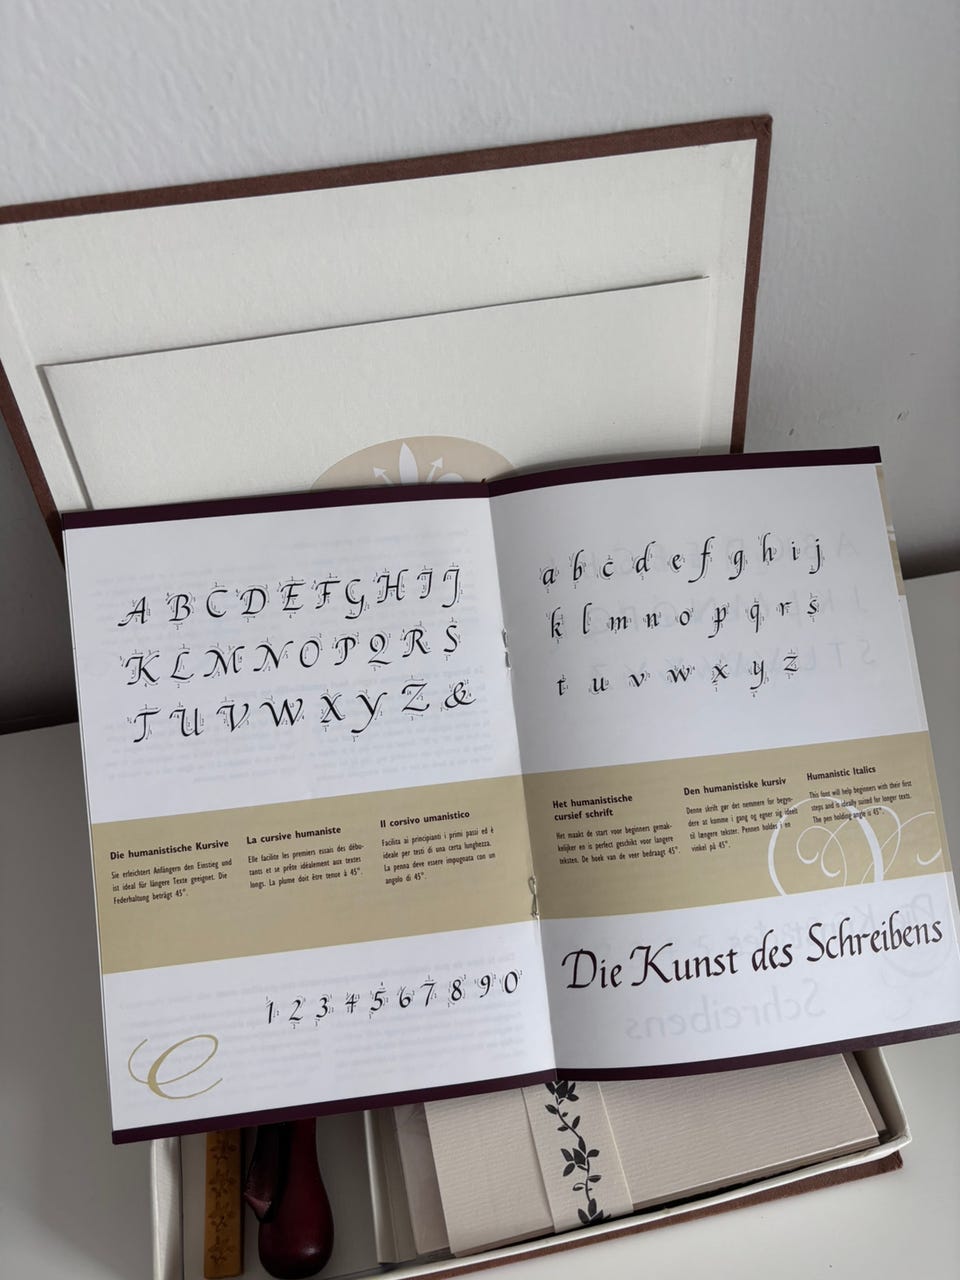 A B C D E F G H I J
K L M N O P Q R S
T U V W X Y Z &
Die humanistische Kursive
Sie erleichtert Anfängern den Einstieg und
ist ideal für längere Texte geeignet. Die
Federhaltung beträgt 45°.
La cursive humaniste
Elle facilite les premiers essais des débu-
tants et se prête idéalement aux textes
longs. La plume doit être tenue à 45°.
Il corsivo umanistico
Facilita ai principianti i primi passi ed è
ideale per testi di una certa lunghezza.
La penna deve essere impugnata con un
angolo di 45°.
1 2 3 4 5 6 7 8 9 0
e
a b c d e f g h i j
k l m n o p q r s
t u v w x y z
Het humanistische
cursief schrift
Het maakt de start voor beginners gemak-
kelijker en is perfect geschikt voor langere
teksten. De hoek van de veer bedraagt 45°.
Den humanistiske kursiv
Denne skrift gør det nemmere for begyn-
dere at komme i gang og egner sig ideelt
til længere tekster. Pennen holdes i en
vinkel på 45°.
Humanistic Italics
This font will help beginners with their first
steps and is ideally suited for longer texts.
The pen holding angle is 45°.
Die Kunst des Schreibens